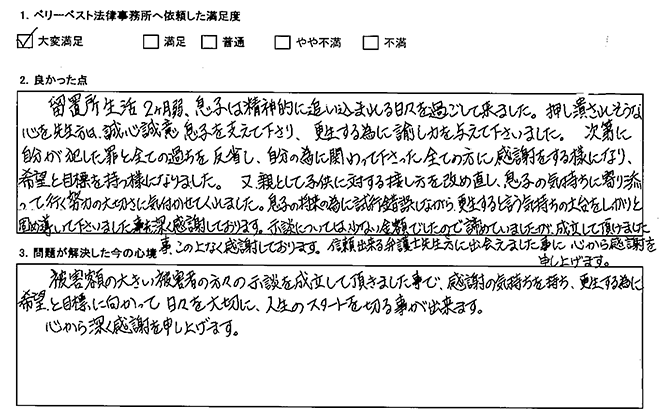 1. ベリーベスト法律事務所へ依頼した満足度
大変満足 満足 普通 やや不満 不満
2. 良かった点
留置所生活2ヶ月弱、息子は精神的に追い込まれる日々を過ごして来ました。押し潰されそうな
心を先生方は、誠心誠意息子を支えて下さり、更生する為に諭し力を与えて下さいました。次第に
自分が犯した罪と全ての過ちを反省し、自分の為に関わって下さった全ての方に感謝をする様になり、
希望と目標を持つ様になりました。又親として子供に対する接し方を改め直し、息子の気持ちに寄り添
って行く努力の大切さに気付かせてくれました。息子の将来の為に試行錯誤しながら更生すると言う気持ちの土台をしかりと
固め導して下さいました事を深く感謝しております。示談については少ない金額でしたので諦めていましたが、成立して頂けました
事、この上なく感謝しております。信頼出来る弁護士先生方に出会えました事に心から感謝を
申し上げます。
3. 問題が解決した今の心境
被害額の大きい被害者の方々の示談を成立して頂きました事で、感謝の気持ちを持ち、更生する為に
希望と目標に向かって日々を大切に、人生のスタートを切る事が出来ます。
心から深く感謝を申し上げます。